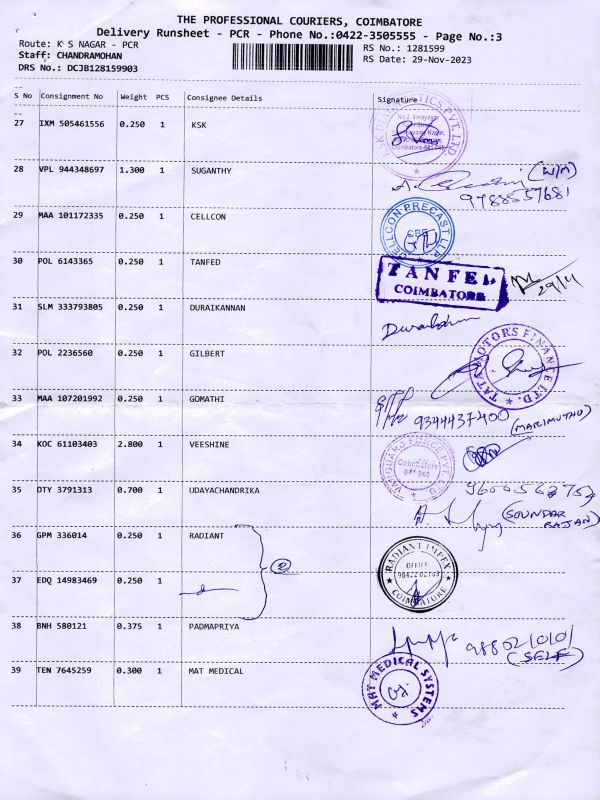 THE PROFESSIONAL COURIERS, COIMBATORE
Delivery Runsheet - PCR - Phone No.:0422-3505555 - Page No.:3
Route: K S NAGAR - PCR
RS No.: 1281599
Staff: CHANDRAMOHAN
RS Date: 29-Nov-2023
DRS No.: DCJB128159903
S No Consignment No Weight PCS Consignee Details Signature
27 IXM 505461556 0.250 1 KSK
28 VPL 944348697 1.300 1 SUGANTHY
(W/M)
9488557681
29 MAA 101172335 0.250 1 CELLCON
CELLCON PRECAST LLP
30 POL 6143365 0.250 1 TANFED
TANFED
COIMBATORE
29/11
31 SLM 333793805 0.250 1 DURAIKANNAN
32 POL 2236560 0.250 1 GILBERT
TATA MOTORS FINANCE LTD.
33 MAA 107201992 0.250 1 GOMATHI
9344437400
(MARIMUTHU)
34 KOC 61103403 2.800 1 VEESHINE
Coimbatore
35 OTY 3791313 0.700 1 UDAYACHANDRIKA
(SOUNDAR
RAJAN)
36 GPM 336014 0.250 1 RADIANT
②
RADIANT IMPEX
OFFICE
COIMBATORE
37 EDQ 14983469 0.250 1
38 BNH 580121 0.375 1 PADMAPRIYA
(SELF)
39 TEN 7645259 0.300 1 MAT MEDICAL
MAT MEDICAL SYSTEMS